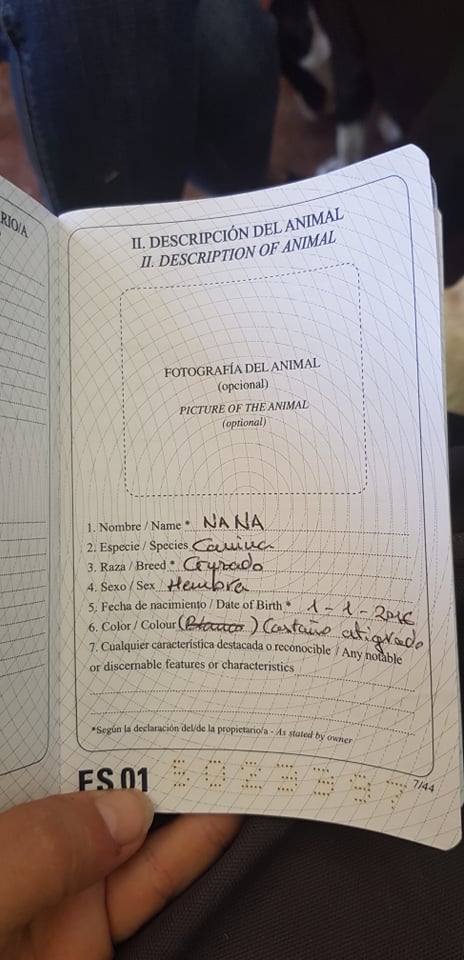 RIO/A
II. DESCRIPCIÓN DEL ANIMAL
II. DESCRIPTION OF ANIMAL
FOTOGRAFÍA DEL ANIMAL
(opcional)
PICTURE OF THE ANIMAL
(optional)
1. Nombre / Name * NANA
2. Especie / Species Canina
3. Raza / Breed * Cruzado
4. Sexo / Sex Hembra
5. Fecha de nacimiento / Date of Birth * 1-1-2016
6. Color / Colour (Blanco) Castaño atigrado
7. Cualquier característica destacada o reconocible / Any notable
or discernable features or characteristics
*Según la declaración del/de la propietario/a - As stated by owner
ES 01 5023397
7/44